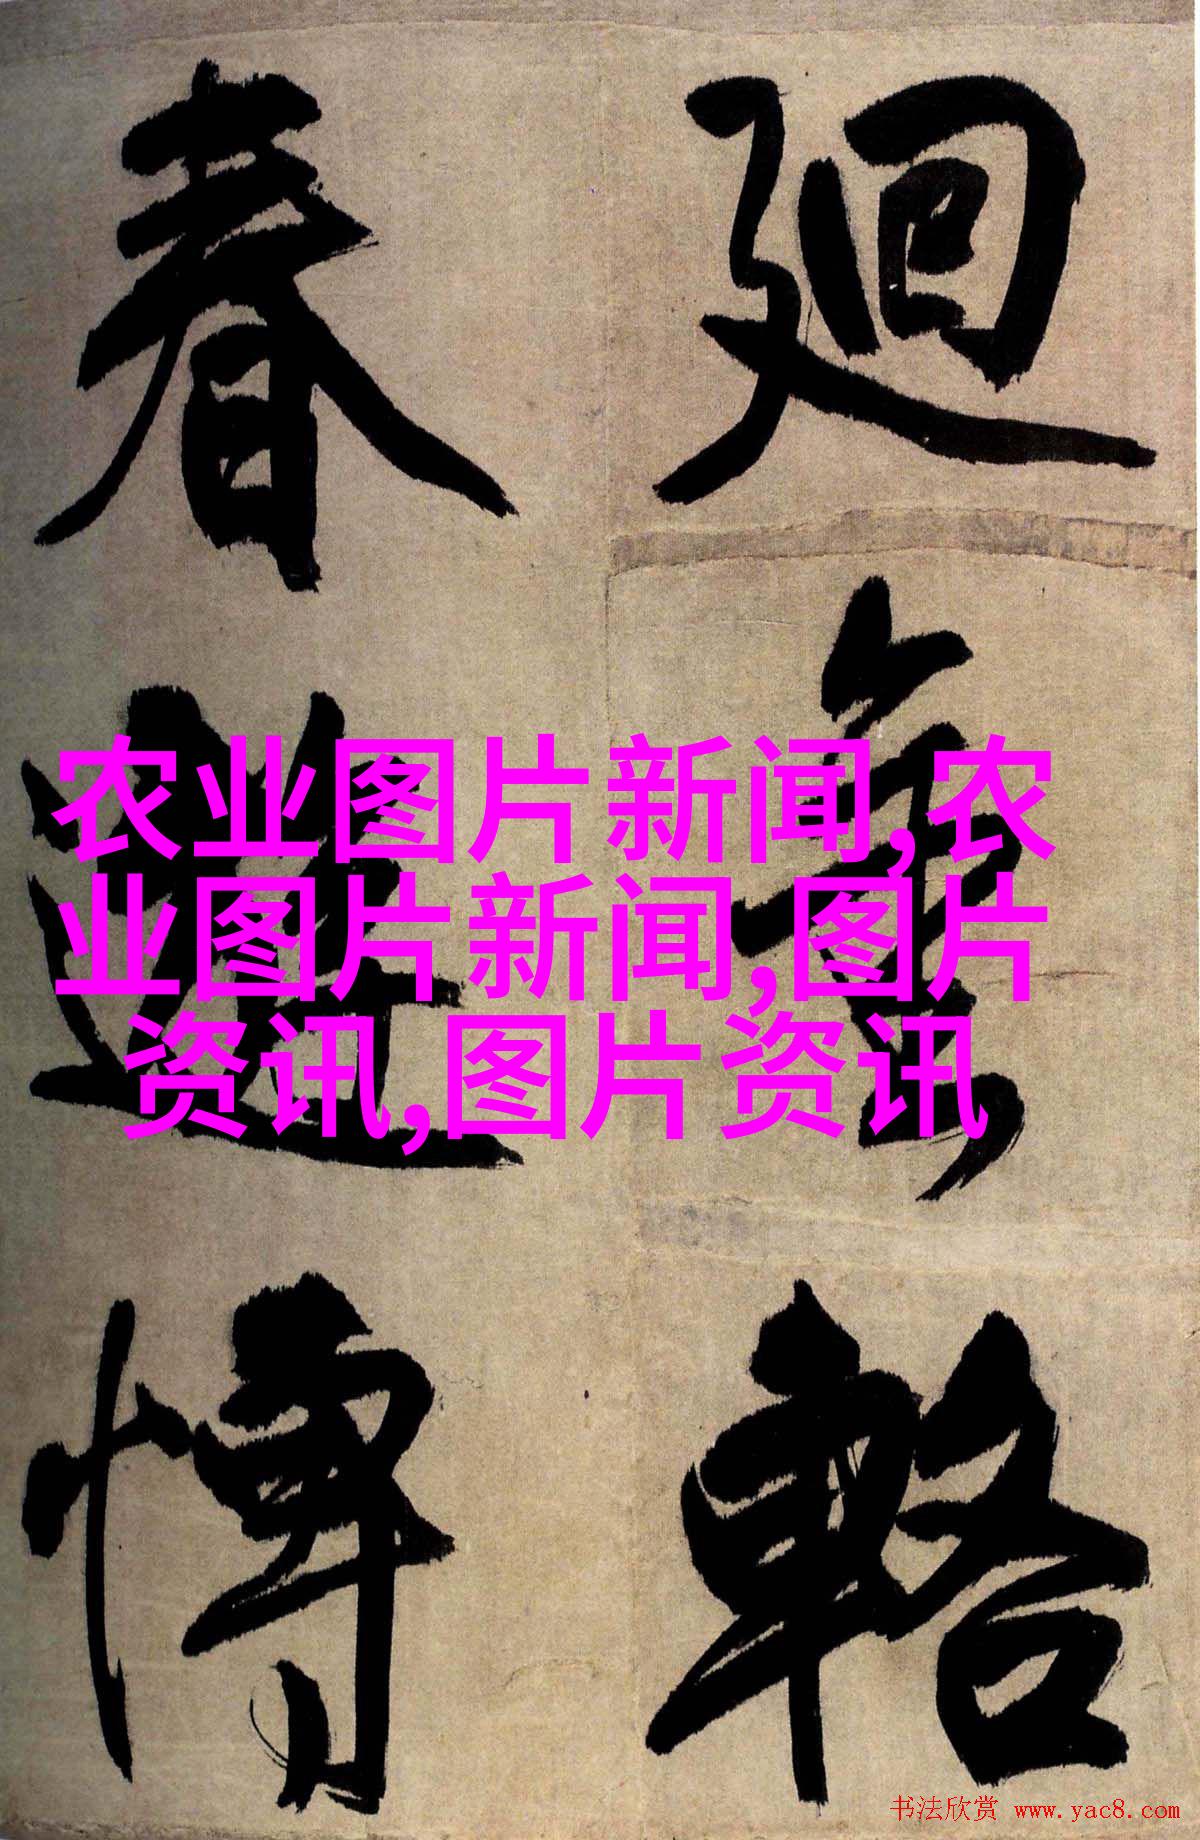 廻
輅
春
博
农业图片新闻,农
业图片新闻,图片
资讯,图片资讯
书法欣赏 www.yac8.com